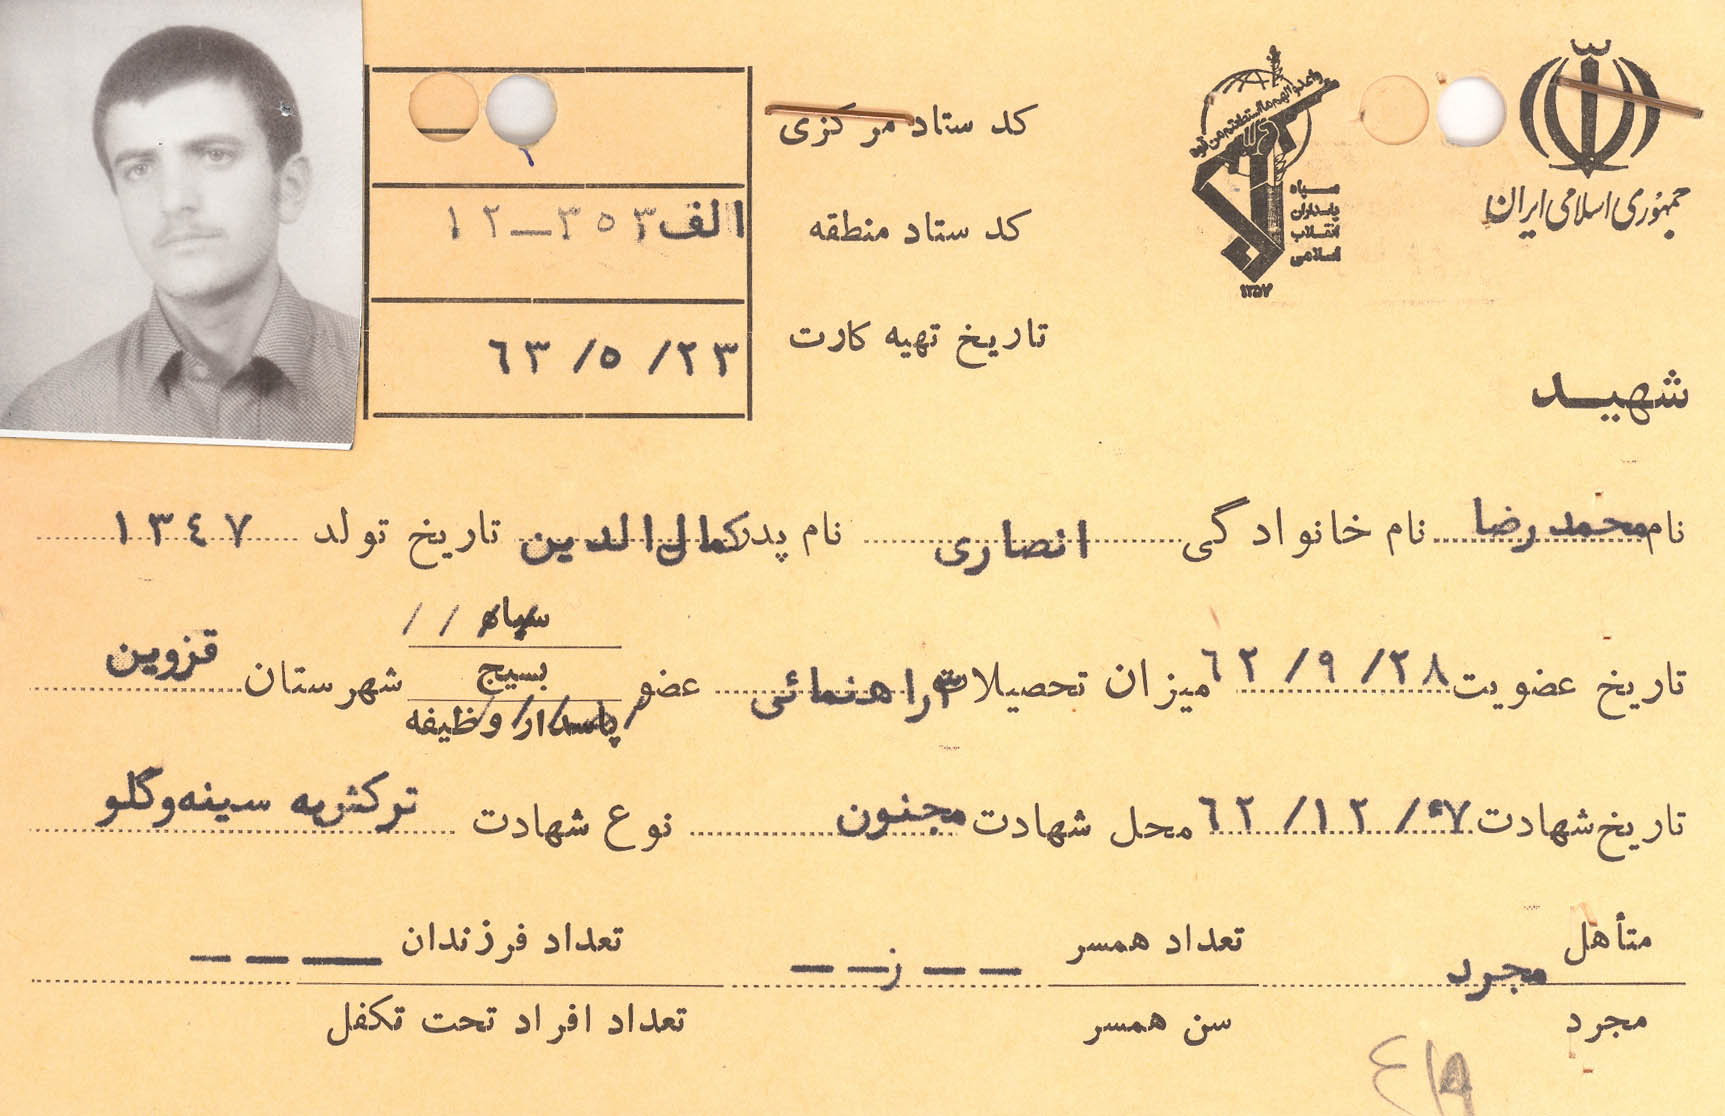 جمهوری اسلامی ایران
سپاه
پاسداران
انقلاب
اسلامی
۱۳۵۷
کد ستاد مرکزی
کد ستاد منطقه الف ۳۵۳-۱۲
تاریخ تهیه کارت ۶۳/۵/۲۳
شهید
نام محمدرضا نام خانوادگی انصاری نام پدر کمال الدین تاریخ تولد ۱۳۴۷
تاریخ عضویت ۶۲/۹/۲۸ میزان تحصیلات راهنمائی عضو سپاه / / بسیج پاسدار وظیفه شهرستان قزوین
تاریخ شهادت ۶۲/۱۲/ ۷ محل شهادت مجنون نوع شهادت ترکش به سینه و گلو
متأهل مجرد تعداد همسر ---- تعداد فرزندان ---
مجرد سن همسر تعداد افراد تحت تکفل